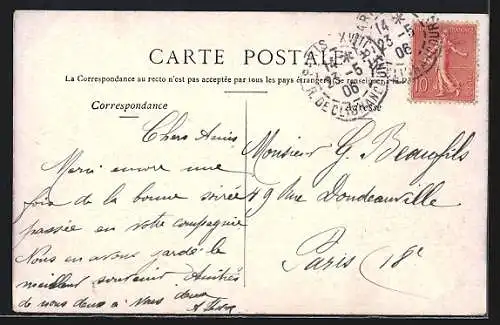 CARTE POSTALE
La Correspondance au recto n'est pas acceptée par tous les pays étrangers. (Se renseigner
Correspondance
Adresse
Chers Amis
Merci encore une
fois de la bonne soirée
passée en votre compagnie
Nous en avons gardé le
meilleur souvenir Amitiés
de nous deux à vous deux
Monsieur G. Beaufils
49 Rue Doudeauville
Paris 18e
PARIS XVIII
14 * 23 -5 06
R. DE CLIGNANCOURT
14 * 23 -5 06
10